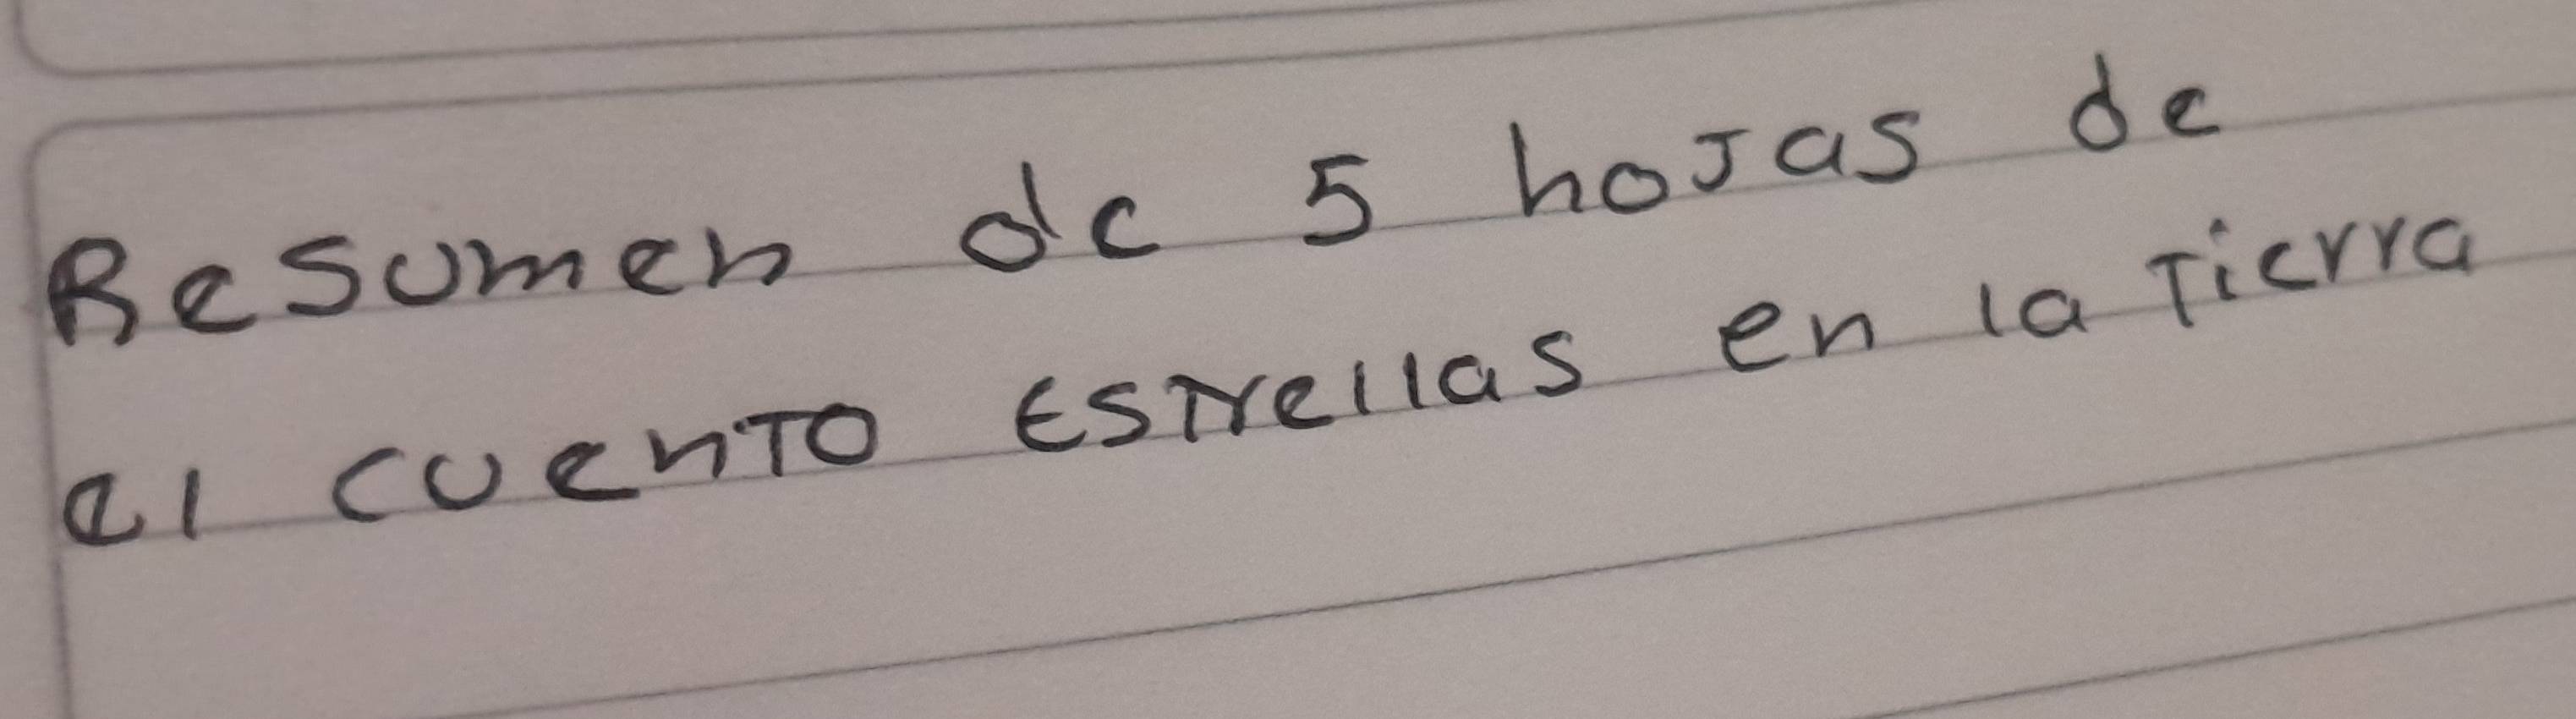 Resumen de 5 hojas de
el cuento Estrellas en la Tierra